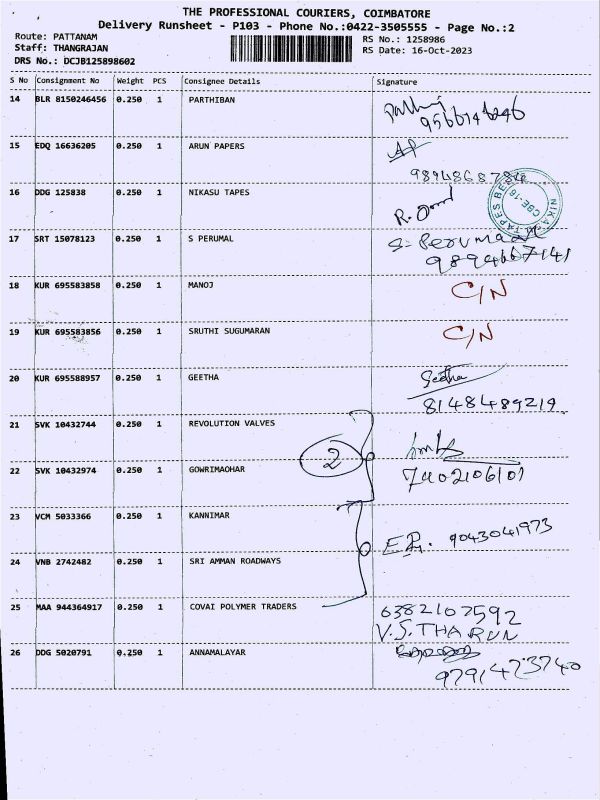 THE PROFESSIONAL COURIERS, COIMBATORE
Delivery Runsheet - P103 - Phone No.:0422-3505555 - Page No.:2
Route: PATTANAM
RS No.: 1258986
Staff: THANGRAJAN
RS Date: 16-Oct-2023
DRS No.: DCJB125898602
S No Consignment No Weight PCS Consignee Details Signature
14 BLR 8150246456 0.250 1 PARTHIBAN
15 EDQ 16636205 0.250 1 ARUN PAPERS
16 DDG 125838 0.250 1 NIKASU TAPES
17 SRT 15078123 0.250 1 S PERUMAL S. Perumal
9894667141
18 KUR 695583858 0.250 1 MANOJ C/N
19 KUR 695583856 0.250 1 SRUTHI SUGUMARAN C/N
20 KUR 695588957 0.250 1 GEETHA Geetha
8148489219
21 SVK 10432744 0.250 1 REVOLUTION VALVES
2
22 SVK 10432974 0.250 1 GOWRIMAOHAR 7402106101
23 VCM 5033366 0.250 1 KANNIMAR 9043041973
24 VNB 2742482 0.250 1 SRI AMMAN ROADWAYS
25 MAA 944364917 0.250 1 COVAI POLYMER TRADERS 6382107592
V.S.THARUN
26 DDG 5020791 0.250 1 ANNAMALAYAR
9791473740